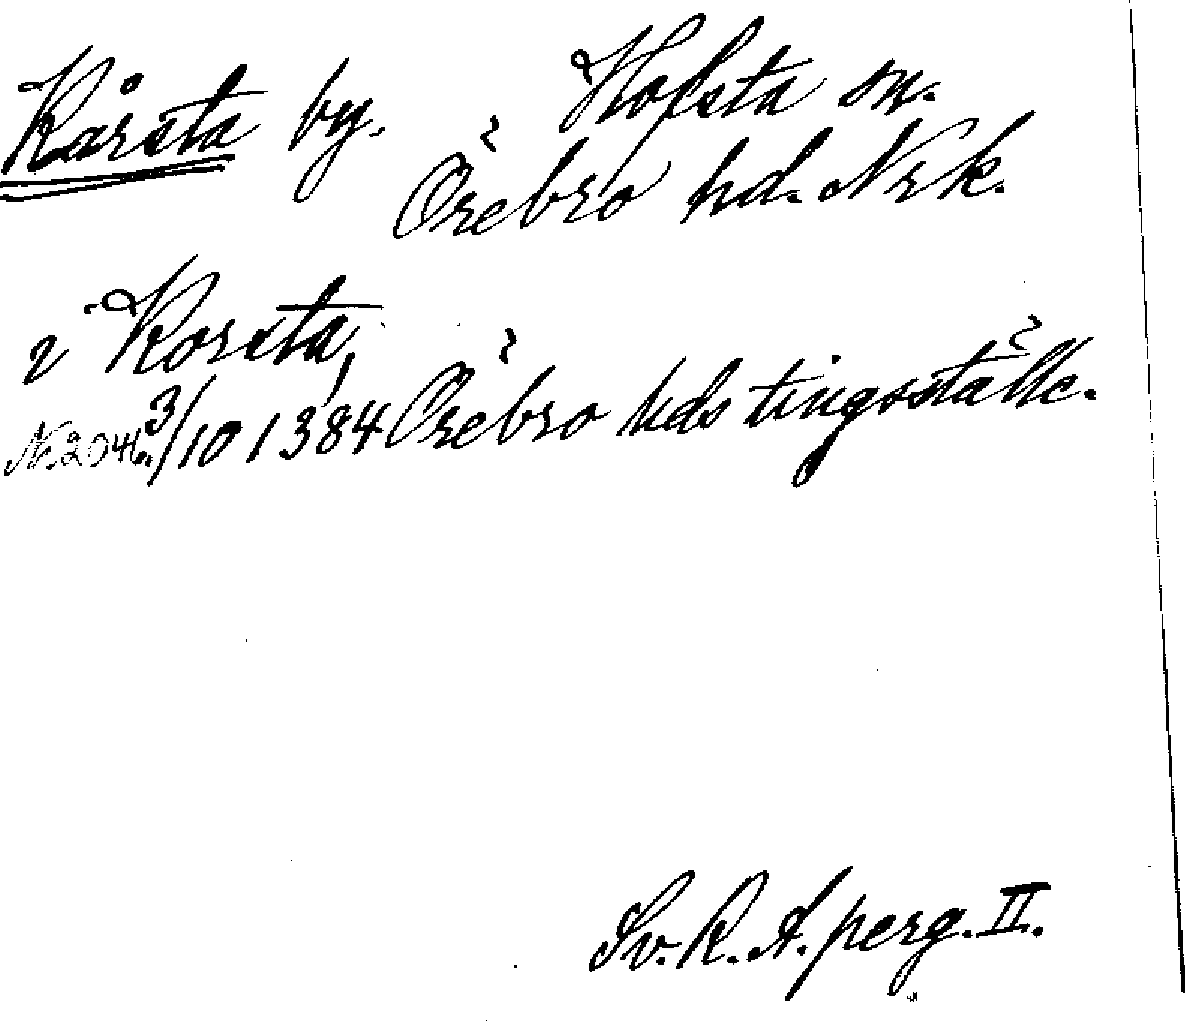 Kårsta by. Hofsta sn.
Örebro hd. Nrk.
i Korsta,
Nr. 2046. 3/10 1384 Örebro hds tingsställe.
Sv. R. A. perg. II.